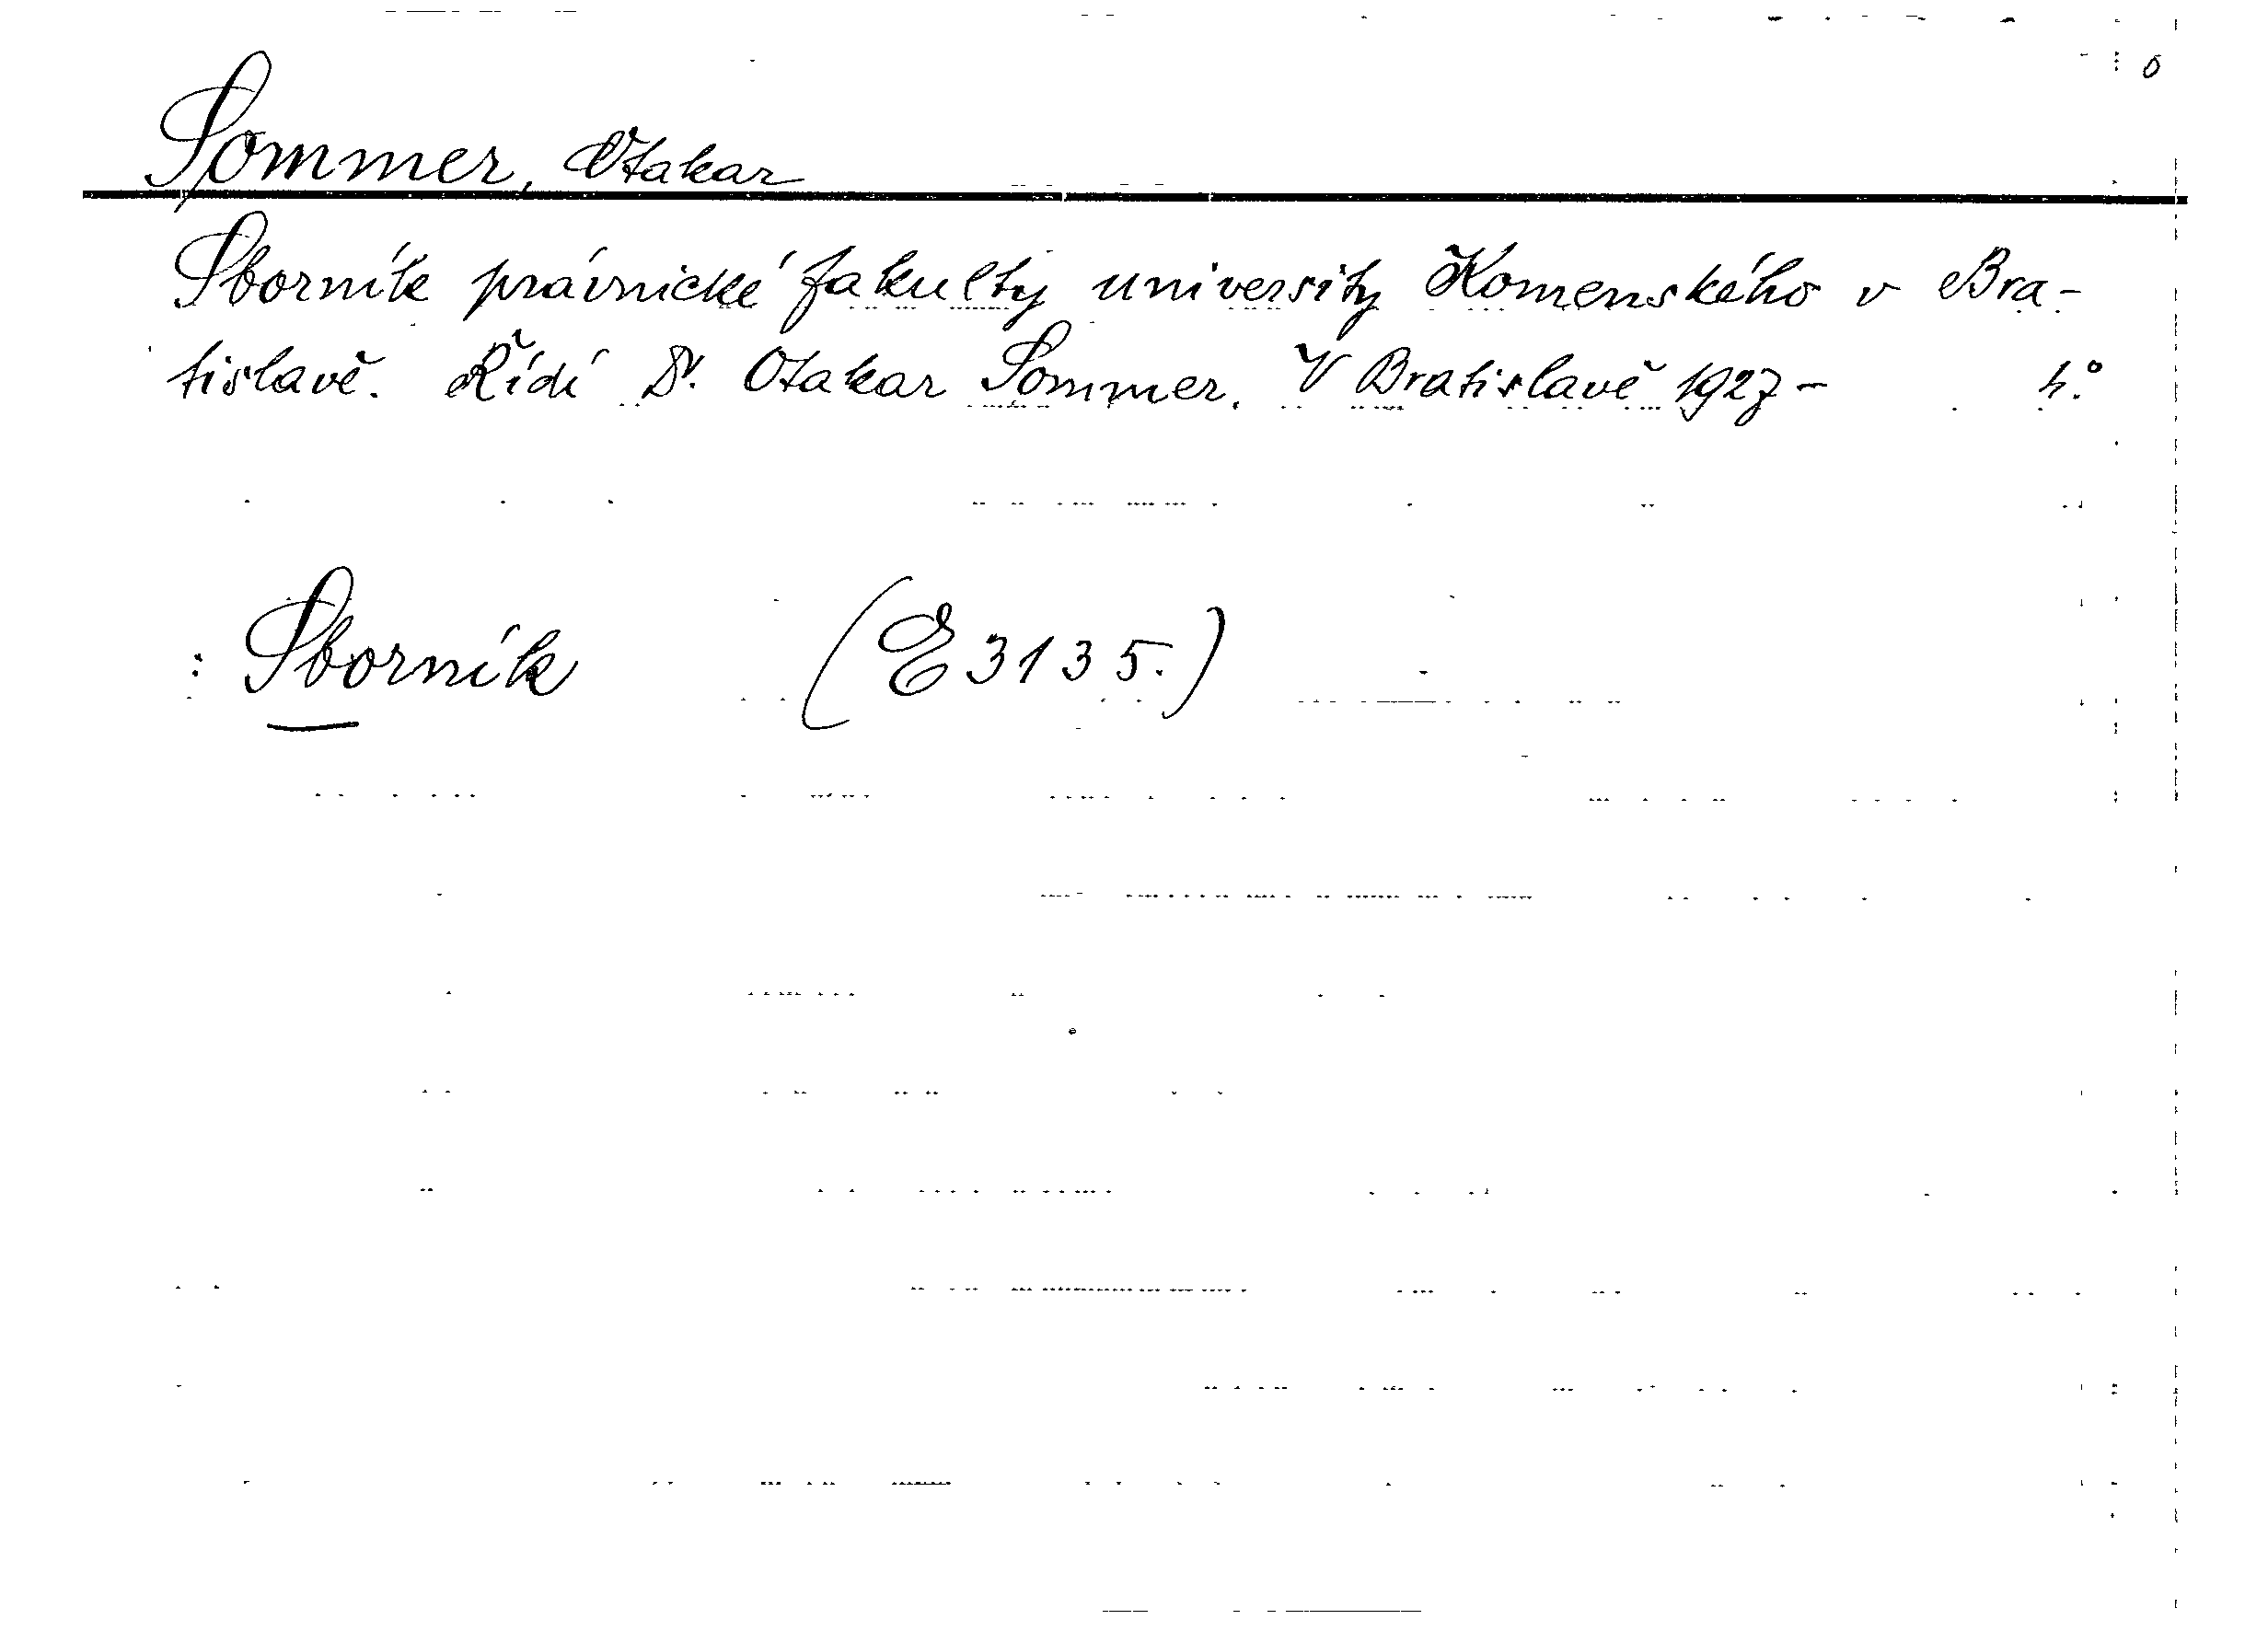 Sommer, Otakar
Sborník právnické fakulty university Komenského v Bra-
tislavě. Řídí Dr. Otakar Sommer. V Bratislavě 1927- 4.°
: Sborník (E 3135.)